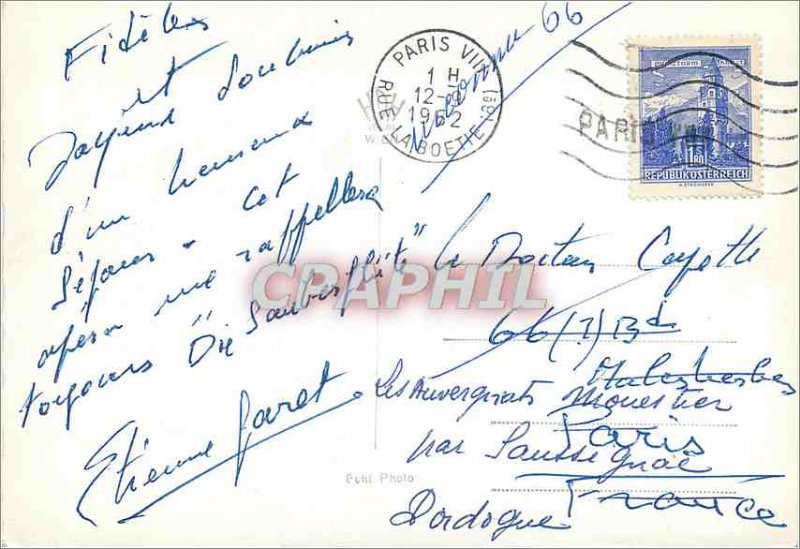 Fidèles
et
d'un heureux
séjour. Cet
opéra me rappellera
toujours "Die Zauberflöte"
Etienne Jaret
PARIS VIII
1 H
12-9
1962
RUE LA BOETIE (8e)
inconnu 66
PARIS
REPUBLIK ÖSTERREICH
Le Docteur Cayotte
66 (?) Bd
Malesherbes
Les Auvergnats Monestier
Paris
par Saussignac
France
Dordogne
Echt Photo
CPAPHIL